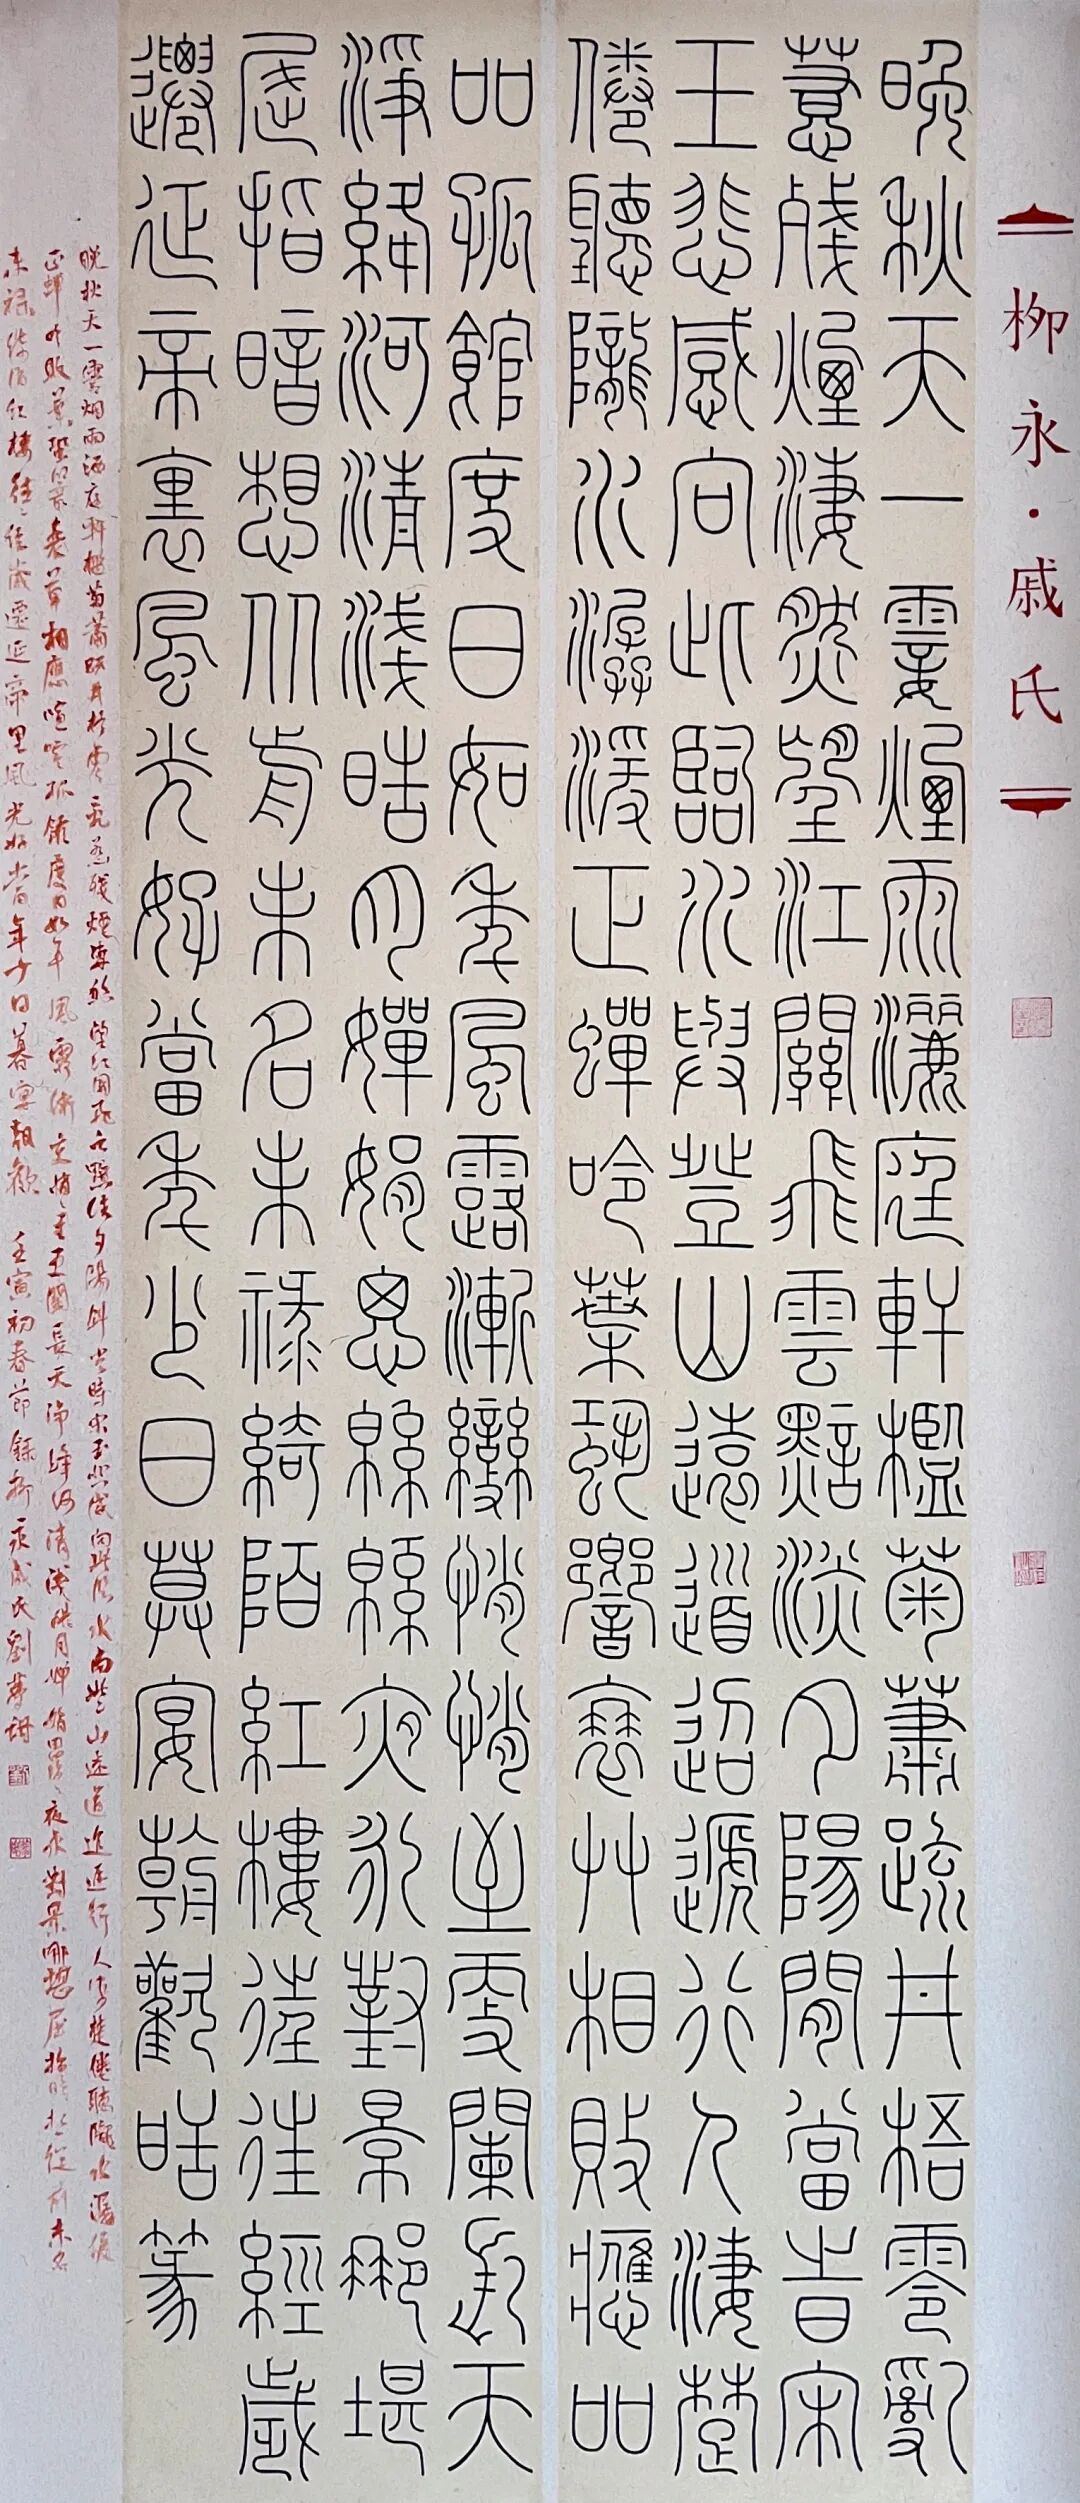 柳永·戚氏
晚秋天一霎煙雨灑庭軒檻菊蕭疏井梧零亂
惹殘煙淒然望江關飛雲黯淡夕陽閒當時宋
玉悲感向此臨水與登山遠道迢遞行人淒楚
倦聽隴水潺湲正蟬吟葉蛩響衰艸相敗應吅
吅孤館度日如年風露漸變悄悄至更闌長天
淨絳河清淺皓月嬋娟思緜緜夜永對景那堪
屈指暗想从前未名未祿綺陌紅樓往往經歲
遷延帝裏風光好當年少日莫宴朝歡皓篆
晚秋天一霎烟雨洒庭軒檻菊蕭疎井梧零亂惹殘煙淒然望江関飛雲黯淡夕陽間當時宋玉悲感向此臨水與登山遠道迢遞行人淒楚倦聽隴水潺湲
正蟬吟敗葉蛩響衰草相應喧喧孤館度日如年風露漸變悄悄至更闌長天淨絳河清淺皓月嬋娟思綿綿夜永對景那堪屈指暗想從前未名
未祿綺陌紅樓往往經歲遷延帝里風光好當年少日暮宴朝歡 壬寅初春節錄柳永戚氏劉